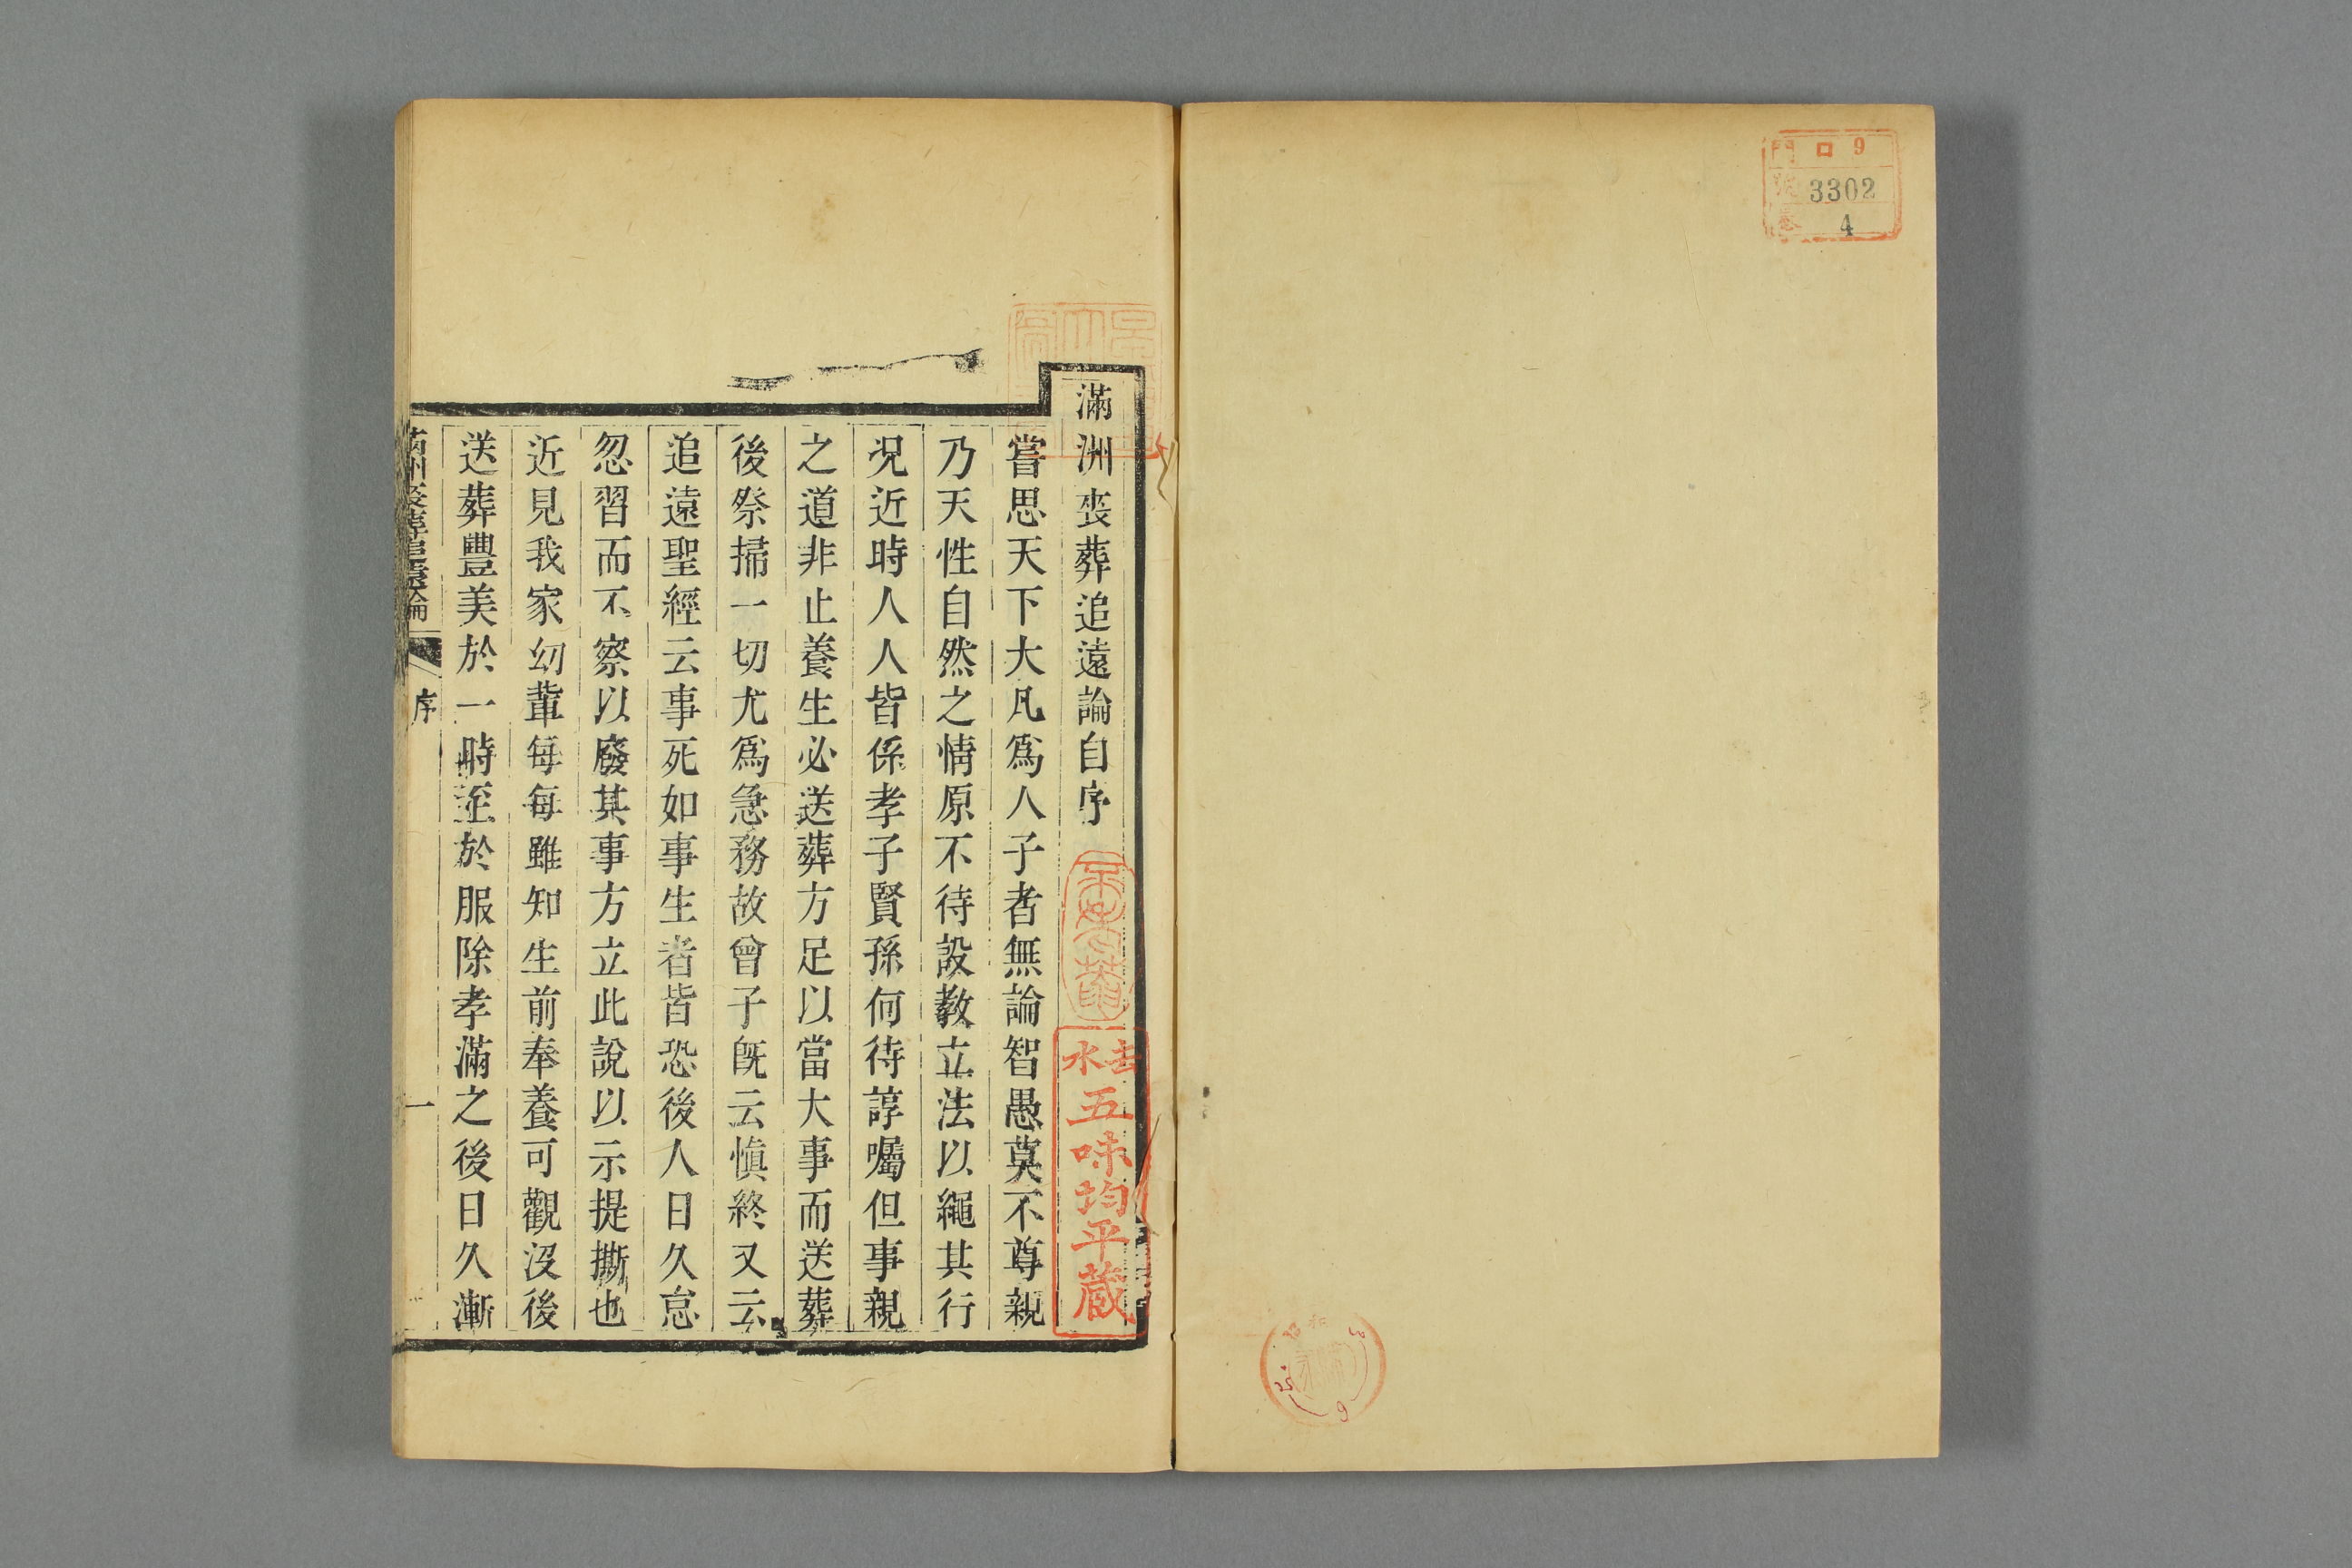 門 口 9
號 3302
卷 4
滿洲喪葬追遠論自序
嘗思天下大凡爲人子者無論智愚莫不尊親
乃天性自然之情原不待設教立法以繩其行
况近時人人皆係孝子賢孫何待諄囑但事親
之道非止養生必送葬方足以當大事而送葬
後祭掃一切尤爲急務故曾子旣云慎終又云
追遠聖經云事死如事生者皆恐後人日久怠
忽習而不察以廢其事方立此說以示提撕也
近見我家幼輩每每雖知生前奉養可觀沒後
送葬豐美於一時至於服除孝滿之後日久漸
滿洲喪葬追遠論
序
一
去水
五味均平藏